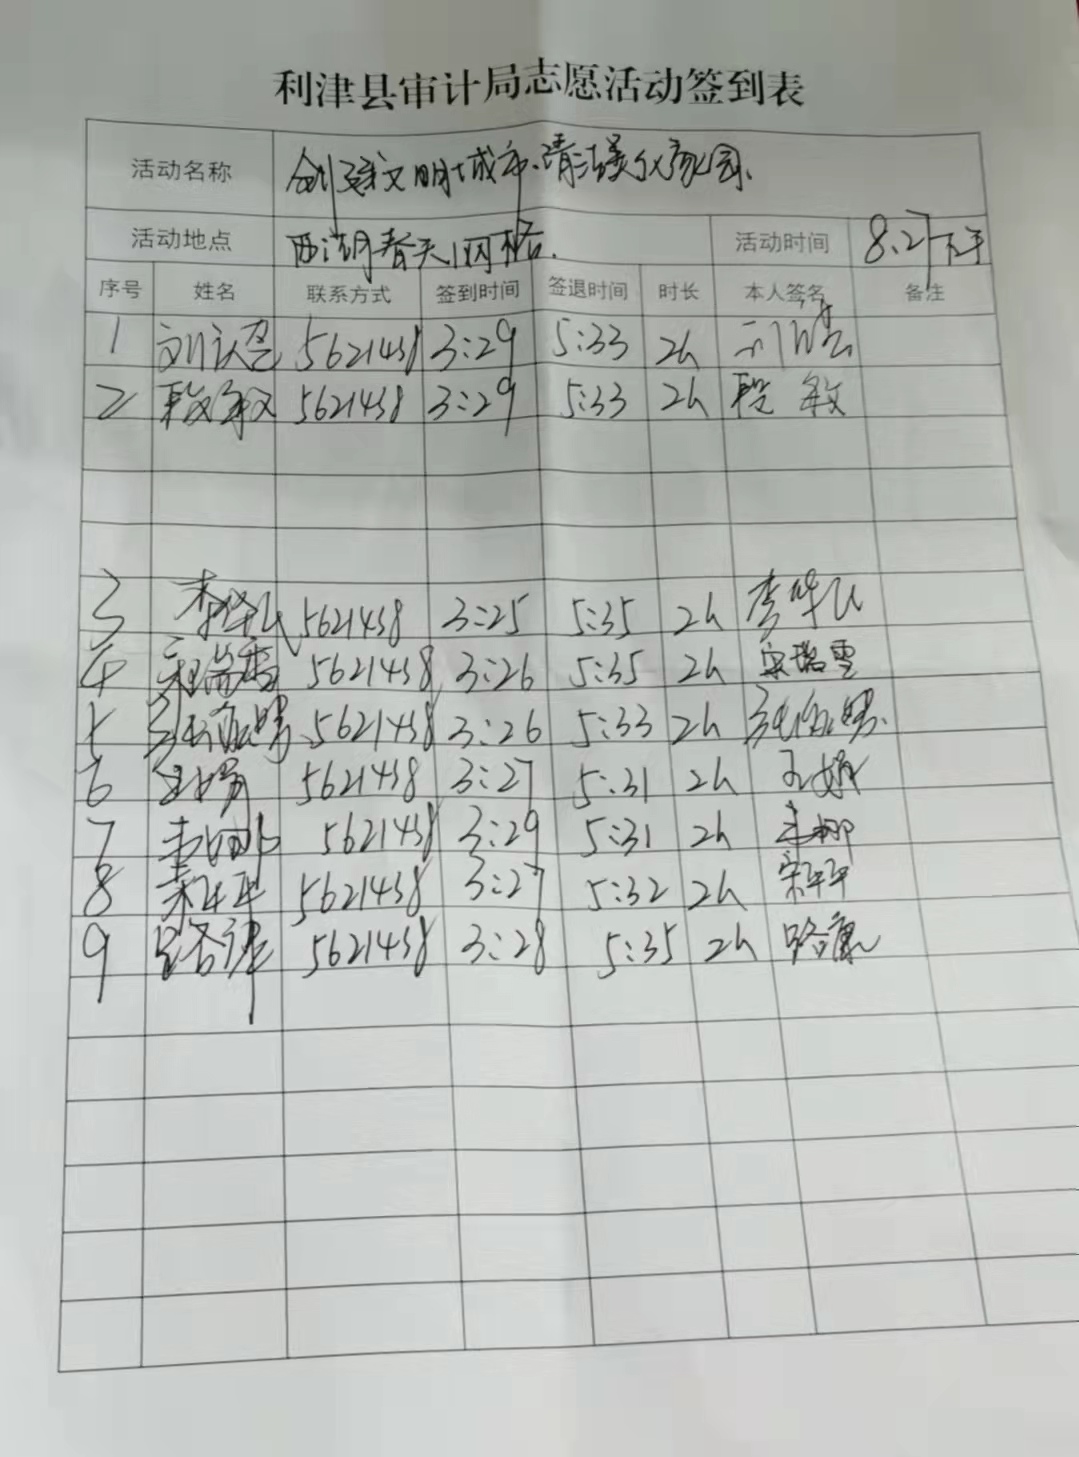 利津县审计局志愿活动签到表
活动名称 创建文明城市、清洁美化家园、
活动地点 西湖春天1网格. 活动时间 8.27下午
序号 姓名 联系方式 签到时间 签退时间 时长 本人签名 备注
1 5621438 3:29 5:33 2h
2 段敏 5621438 3:29 5:33 2h 段敏
3 李华民 5621438 3:25 5:35 2h 李华民
4 5621438 3:26 5:35 2h
5 5621438 3:26 5:33 2h
6 5621438 3:27 5:31 2h
7 5621438 3:29 5:31 2h
8 5621438 3:27 5:32 2h 宋平平
9 5621438 3:28 5:35 2h